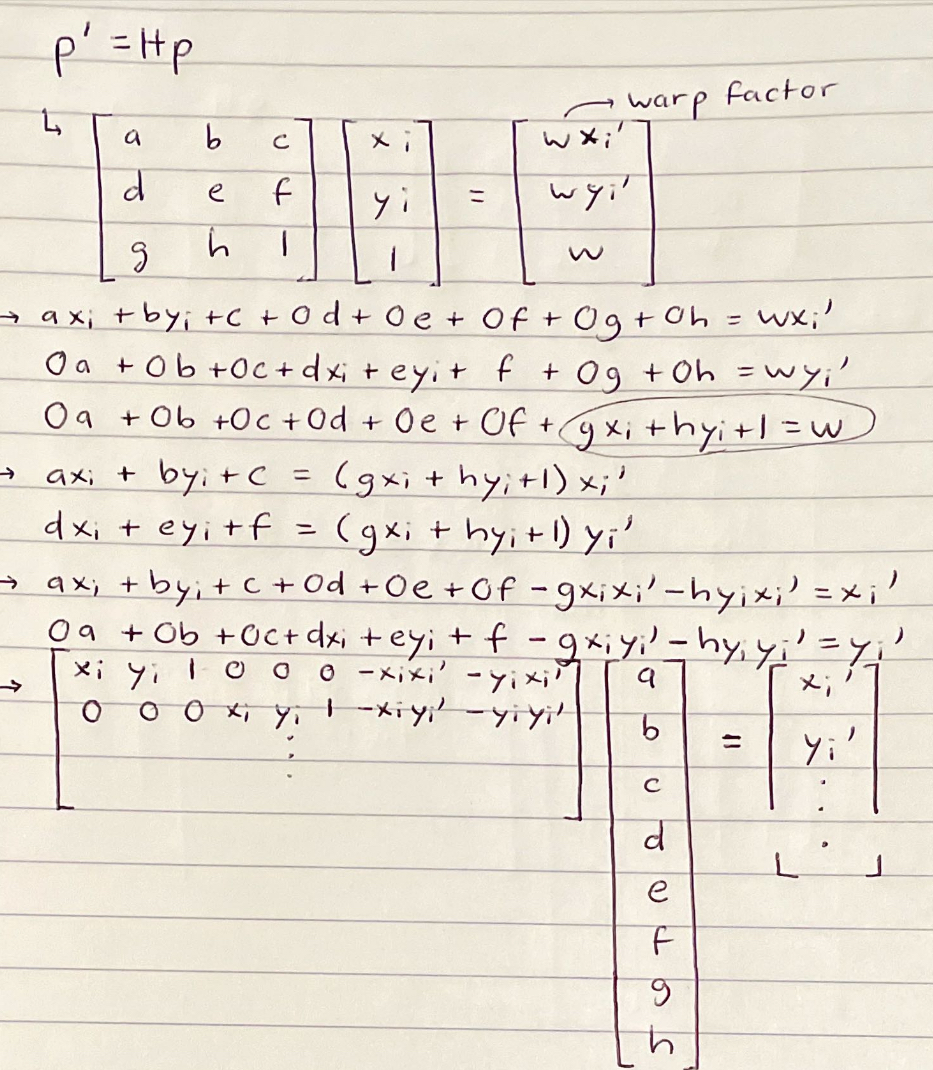 p' = Hp
→ warp factor
↳ [ a b c ] [ xi ] = [ wxi' ]
[ d e f ] [ yi ] [ wyi' ]
[ g h 1 ] [ 1 ] [ w ]
→ axi + byi + c + 0d + 0e + 0f + 0g + 0h = wxi'
0a + 0b + 0c + dxi + eyi + f + 0g + 0h = wyi'
0a + 0b + 0c + 0d + 0e + 0f + gxi + hyi + 1 = w
→ axi + byi + c = (gxi + hyi + 1) xi'
dxi + eyi + f = (gxi + hyi + 1) yi'
→ axi + byi + c + 0d + 0e + 0f - gxixi' - hyixi' = xi'
0a + 0b + 0c + dxi + eyi + f - gxiyi' - hyiyi' = yi'
→ [ xi yi 1 0 0 0 -xixi' -yixi' ] [ a ] = [ xi' ]
0 0 0 xi yi 1 -xiyi' -yiyi' b yi'
⋮ c ⋮
d
e
f
g
h